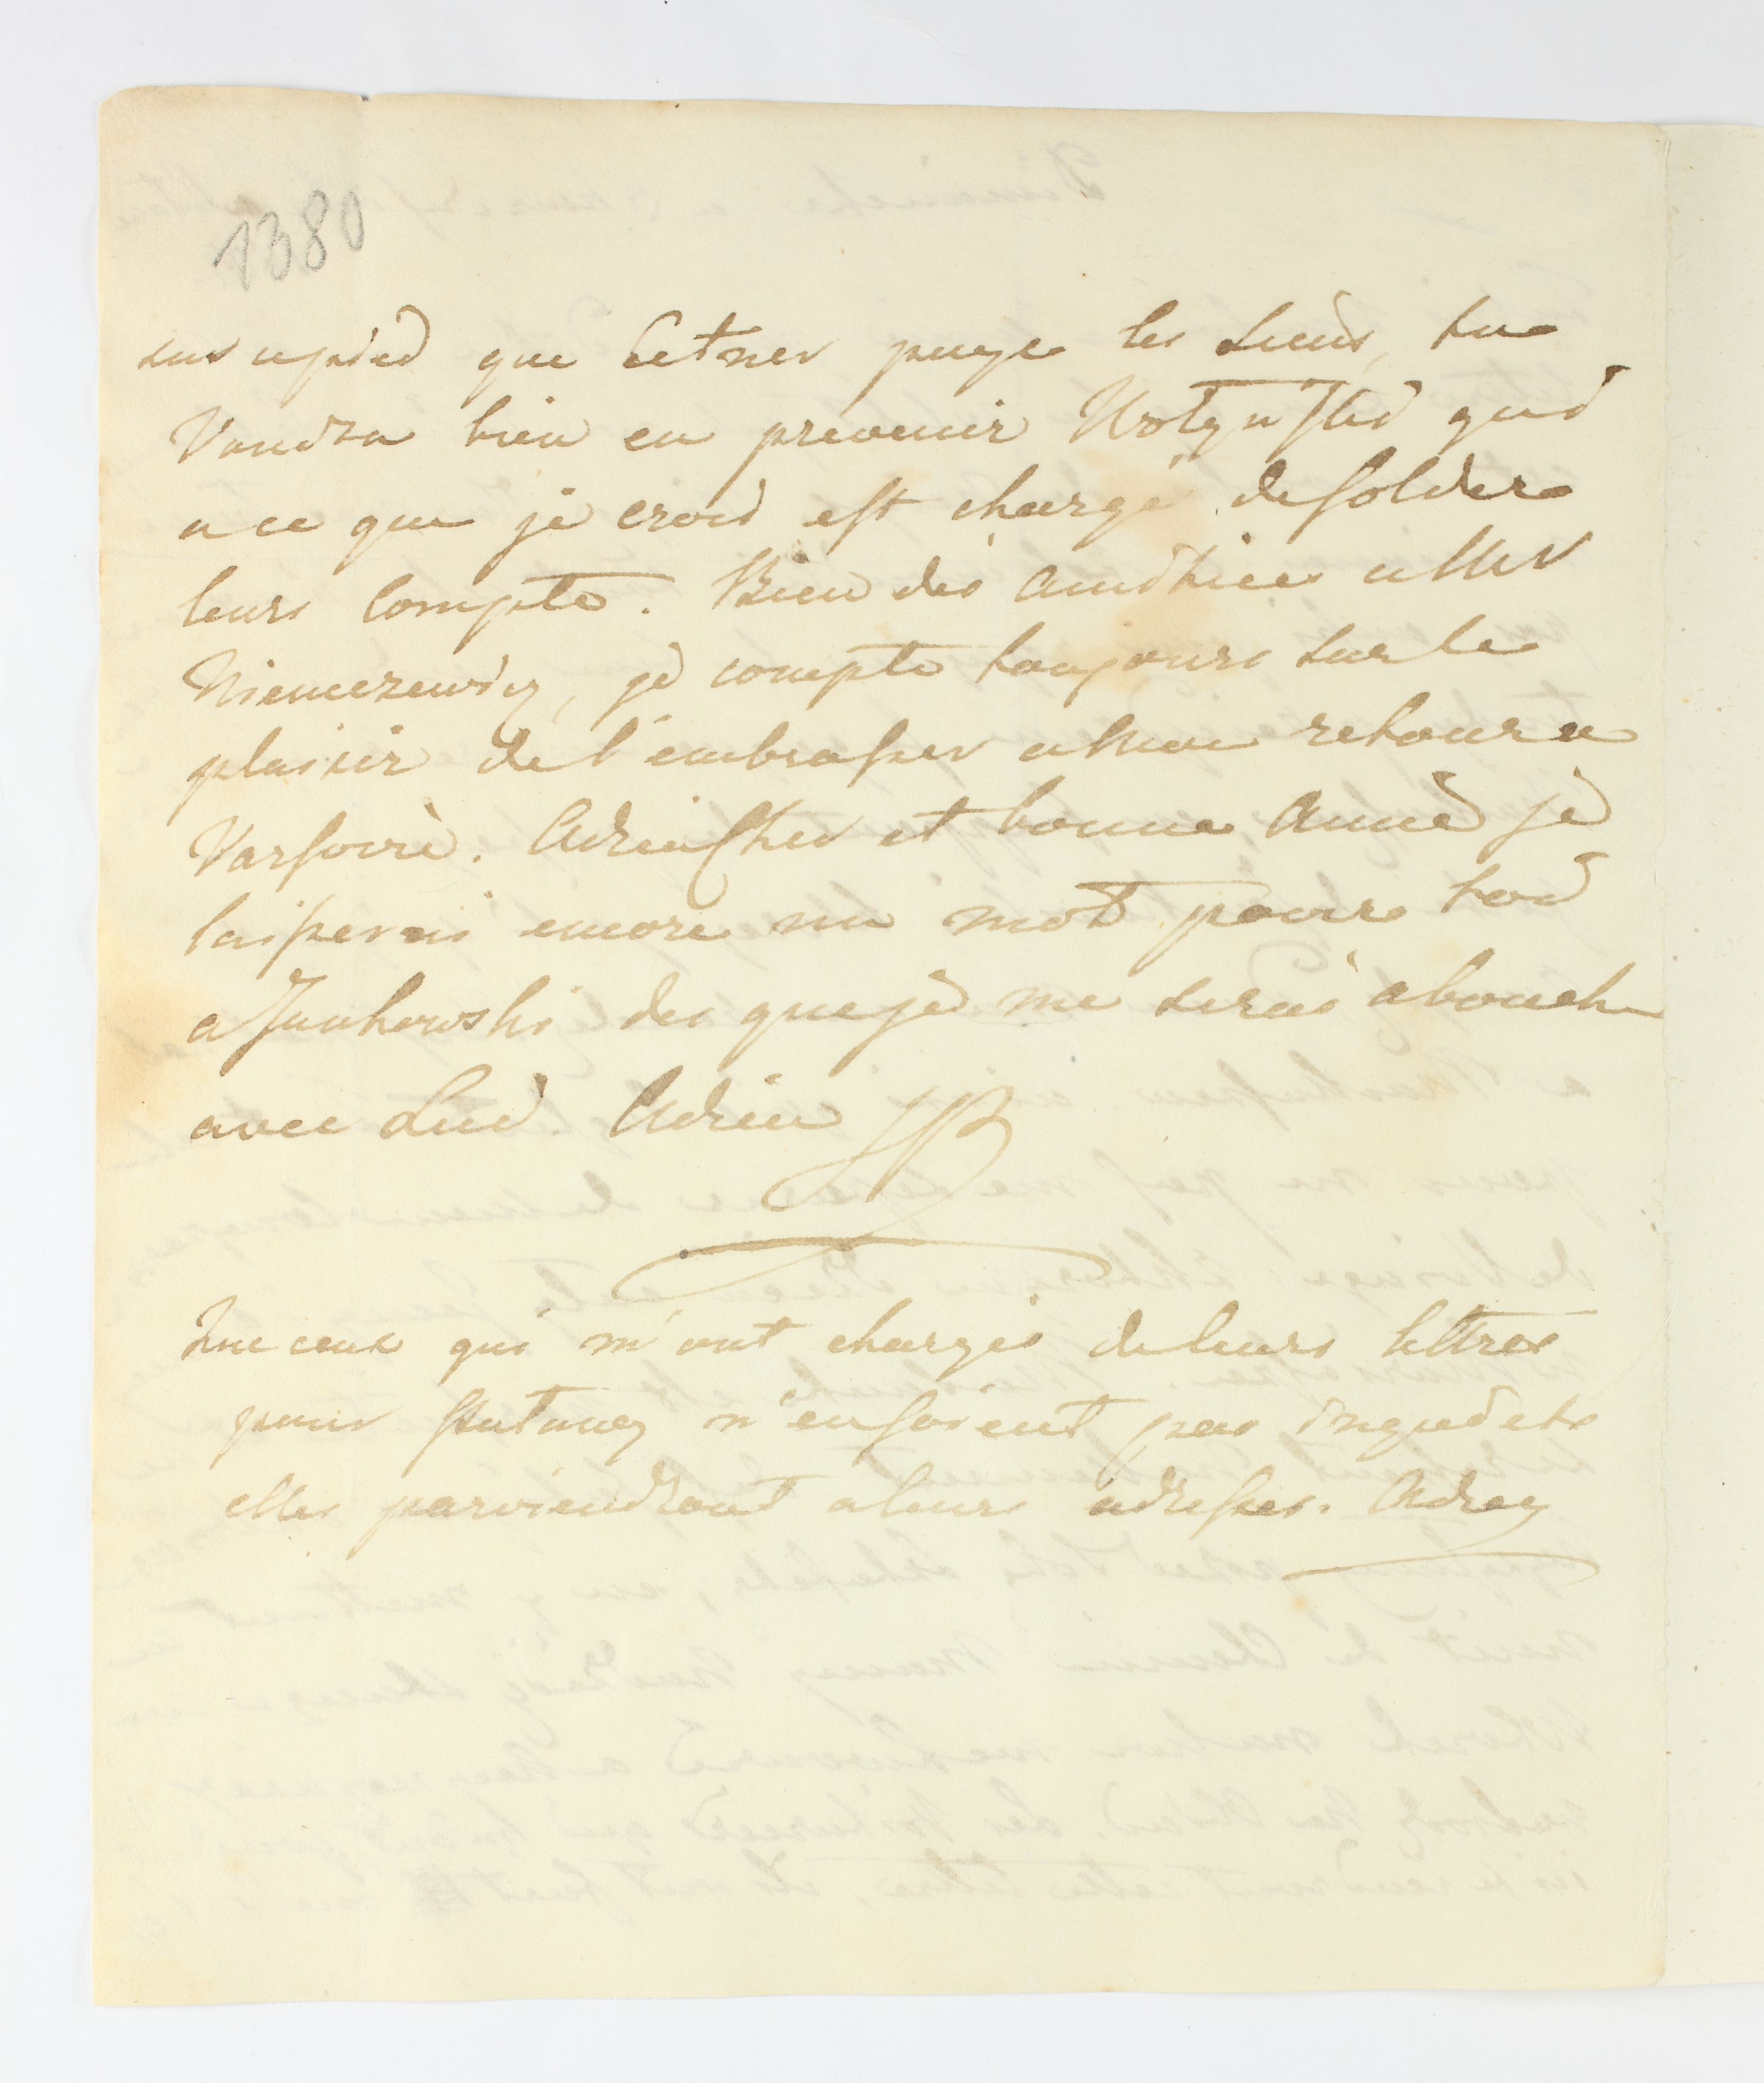 1380
sur cepied que Cetner paye les siens, tu
Voudra bien en prevenir qui
a ce que je crois est chargé de solder
leurs Compte. Bien des amitiees a Mer
Niemczewicz, je compte toujours sur le
plaisir de l'embrasser a Mon retour a
Varsovie. Adieu Cher et bonne Amie je
laisserai encore un mot pour toi
a Jankowski des que je me serai abouch
avec Lud. Adieu
Que ceux qui m'ont chargés de leurs lettres
pour n'en soient pas inquiets
elles parviendront a leurs adresses. Adieu